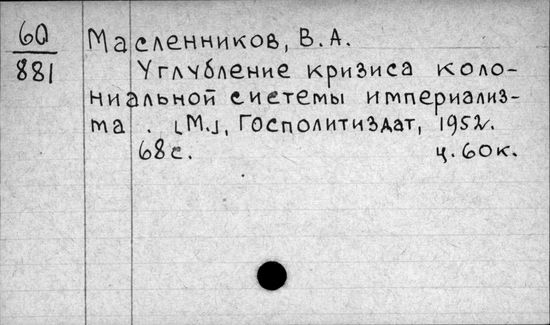 60
881
Масленников, В.А.
Углубление кризиса коло-
ниальной системы империализ-
ма. [М.], Госполитиздат, 1952.
68с. ц. 60к.